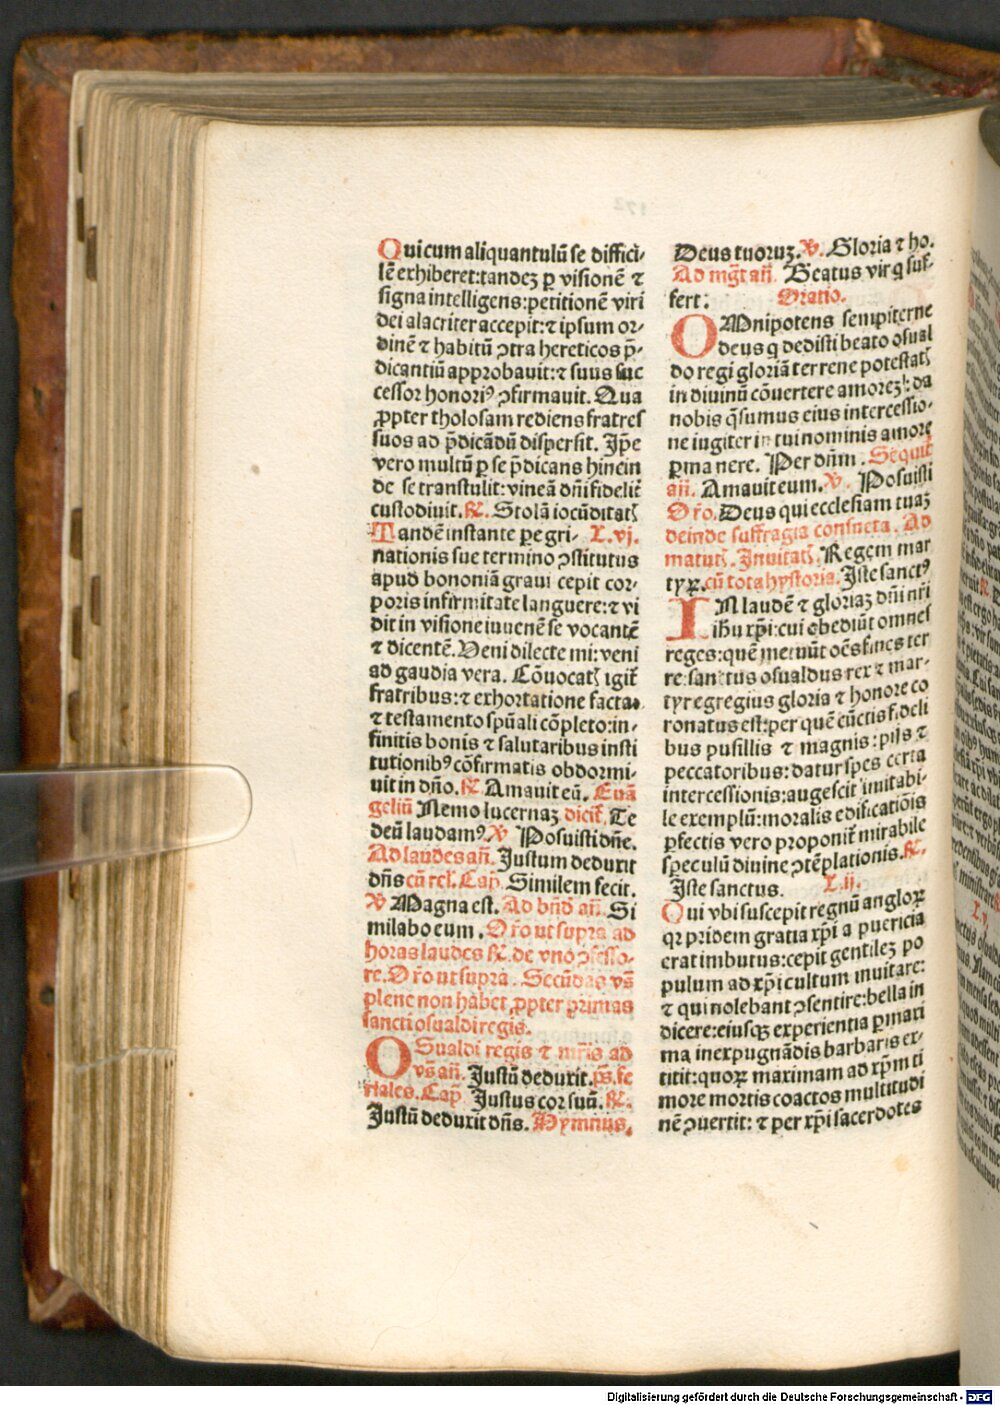 Qui cum aliquantulū se diffici-
lē exhiberet: tandeꝫ ꝑ visionē ⁊
signa intelligens: petitionē viri
dei alacriter accepit: ⁊ ipsum or-
dinē ⁊ habitū ↄtra hereticos p̄-
dicantiū approbauit: ⁊ suus suc
cessor honoriꝰ ↄfirmauit. Qua
ꝓpter tholosam rediens fratres
suos ad p̄dicādū dispersit. Ip̄e
vero multū ꝑ se p̄dicans hinc in
de se transtulit: vineā dn̄i fidelit̄
custodiuit. R̄. Stolā iocūditatꝭ
Tandē instante peregri- L. vj.
nationis sue termino ↄstitutus
apud bononiā graui cepit cor-
poris infirmitate languere: ⁊ vi
dit in visione iuuenē se vocantē
⁊ dicentē. Veni dilecte mi: veni
ad gaudia vera. Cōuocatꝭ igit̄
fratribus: ⁊ exhortatione facta:
⁊ testamento spūali cōpleto: in-
finitis bonis ⁊ salutaribus insti
tutionibꝰ cōfirmatis obdormi-
uit in dn̄o. R̄. Amauit eū. Euā
geliū Nemo lucernaꝫ dicit̄. Te
deū laudamꝰ ℣ Posuisti dn̄e.
Ad laudes an̄. Iustum deduxit
dn̄s cū rel̄. Cap̄. Similem fecit.
℣ Magna est. Ad bn̄d̄ an̄. Si
milabo eum. Or̄o ut supra ad
horas laudes R̄. de vno ↄfesso-
re. Or̄o ut supra. Secūdas vs̄
plene non habet ꝓpter primas
sancti osualdi regis.
OSualdi regis ⁊ mr̄is ad
vs̄ an̄. Iustū deduxit. ps̄. fe
riales. Cap̄. Iustus cor suū. R̄.
Iustū deduxit dn̄s. Hymnus.
Deus tuoruꝫ. ℣. Gloria ⁊ ho.
Ad mḡt an̄. Beatus vir q suf-
fert: Oratio.
OMnipotens sempiterne
deus q dedisti beato osual
do regi gloriā terrene potestatꝭ
in diuinū cōuertere amoreꝫ: da
nobis q̄sumus eius intercessio-
ne iugiter in tui nominis amore
ꝑmanere. Per dn̄m. Sequit̄
an̄. Amauit eum. ℣. Posuisti
Or̄o. Deus qui ecclesiam tuaꝫ
deinde suffragia consueta. Ad
matutꝭ. Inuitatꝭ. Regem mar
tyꝝ. cū tota hystoria. Iste sanctꝰ
IN laudē ⁊ gloriaꝫ dn̄i nr̄i
ihū xp̄i: cui obediūt omnes
reges: quē metuūt oēs fines ter
re: sanctus osualdus rex ⁊ mar-
tyr egregius gloria ⁊ honore co
ronatus est: per quē cūctis fideli
bus pusillis ⁊ magnis: pijs ⁊
peccatoribus: datur spes certa
intercessionis: augescit imitabi-
le exemplū: moralis edificatiōis
ꝑfectis vero proponit̄ mirabile
speculū diuine ↄtēplationis. R̄.
Iste sanctus. L. ij.
Qui vbi suscepit regnū angloꝝ
qꝛ pridem gratia xp̄i a puericia
erat imbutus: cepit gentileꝫ po
pulum ad xp̄i cultum mutare:
⁊ qui nolebant ↄsentire: bella in
dicere: eiusqꝫ experientia ꝑ maxi
ma inexpugnādis barbaris ex-
titit: quoꝝ maximam ad xp̄m ti
more mortis coactos multitudi
nē ↄuertit: ⁊ per xp̄i sacerdotes
Digitalisierung gefördert durch die Deutsche Forschungsgemeinschaft - DFG